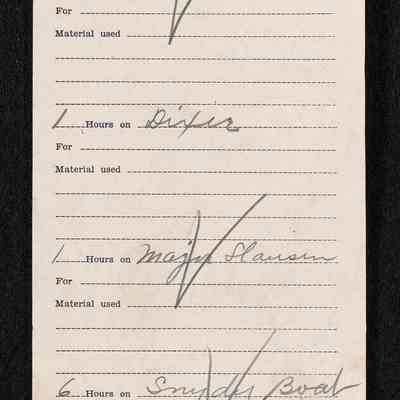 For
Material used
1 Hours on Dixie
For
Material used
1 Hours on Major Slausen
For
Material used
6 Hours on Snyder Boat